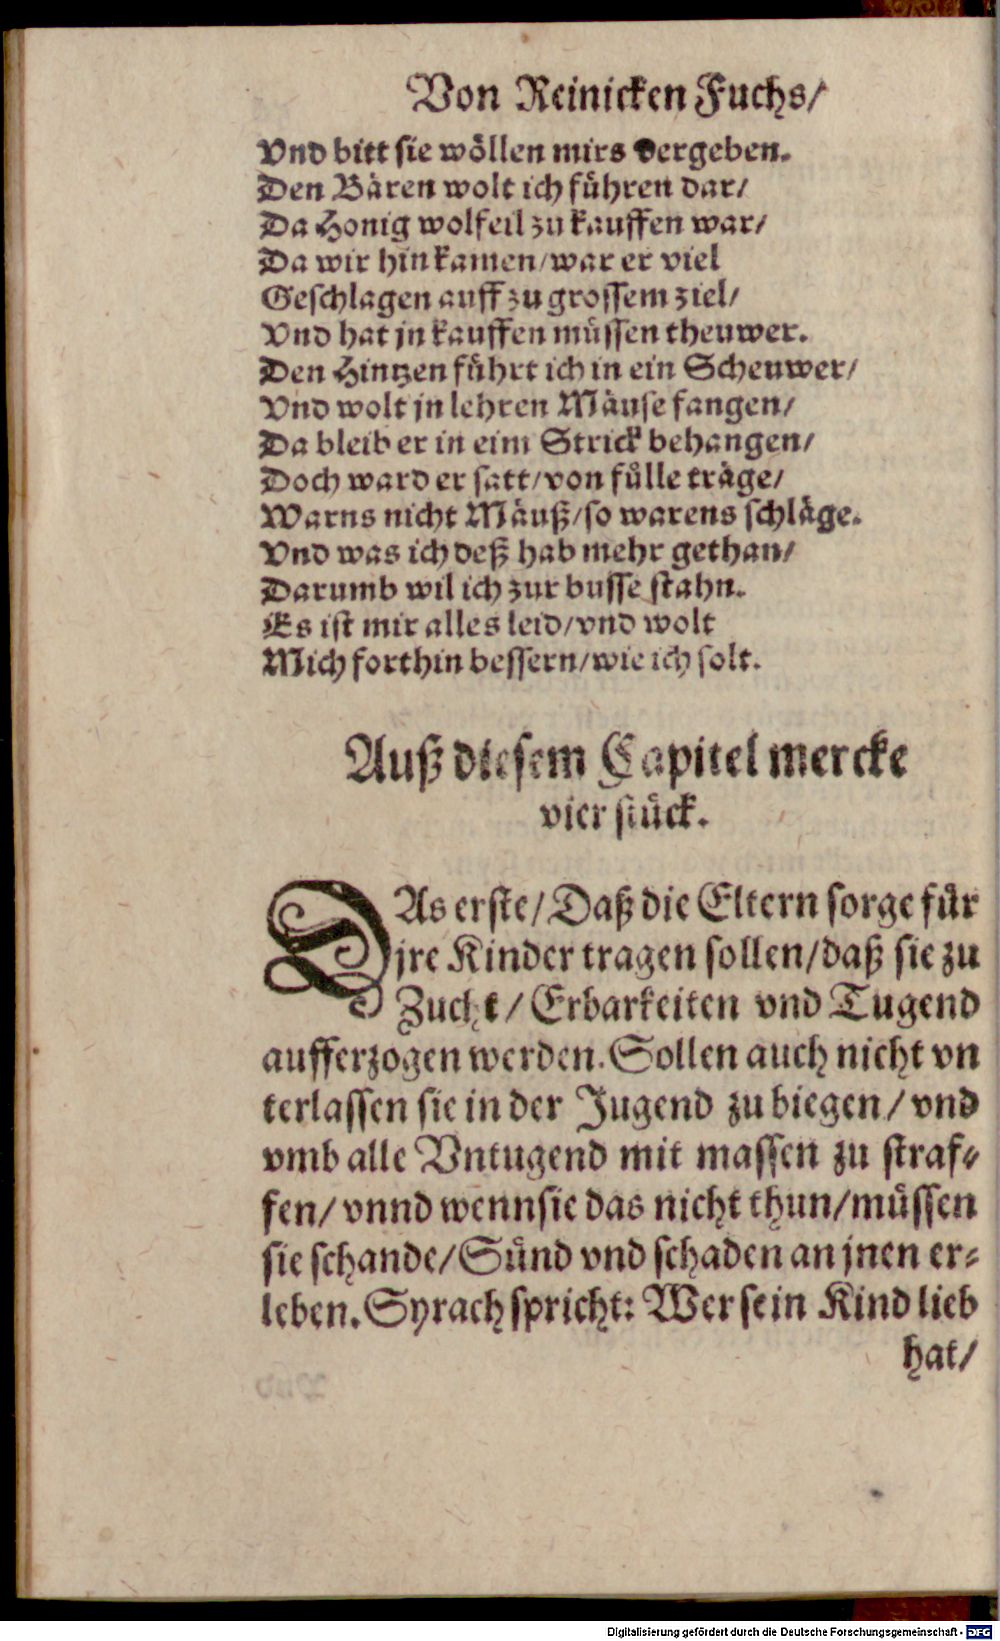 Von Reinicken Fuchs/
Vnd bitt sie wöllen mirs vergeben.
Den Bären wolt ich führen dar/
Da Honig wolfeil zu kauffen war/
Da wir hin kamen/war er viel
Geschlagen auff zu grossem ziel/
Vnd hat jn kauffen müssen theuwer.
Den Hintzen führt ich in ein Scheuwer/
Vnd wolt jn lehren Mäuse fangen/
Da bleib er in eim Strick behangen/
Doch ward er satt/von fülle träge/
Warns nicht Mäuß/so warens schläge.
Vnd was ich deß hab mehr gethan/
Darumb wil ich zur busse stahn.
Es ist mir alles leid/vnd wolt
Mich forthin bessern/wie ich solt.
Auß diesem Capitel mercke
vier stück.
DAs erste/Daß die Eltern sorge für
jre Kinder tragen sollen/daß sie zu
Zucht/Erbarkeiten vnd Tugend
aufferzogen werden. Sollen auch nicht vn
terlassen sie in der Jugend zu biegen/vnd
vmb alle Vntugend mit massen zu straf-
fen/vnnd wenn sie das nicht thun/müssen
sie schande/Sünd vnd schaden an jnen er-
leben. Syrach spricht: Wer sein Kind lieb
hat/
Digitalisierung gefördert durch die Deutsche Forschungsgemeinschaft - DFG